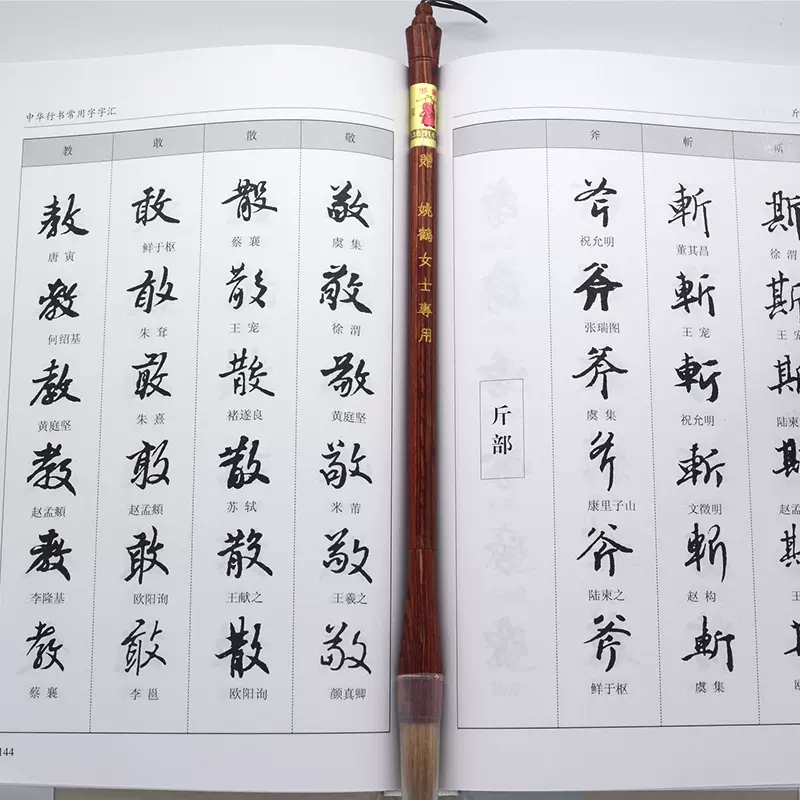 中华行书常用字字汇
教 敢 散 敬
教 敢 散 敬
唐寅 鲜于枢 蔡襄 虞集
教 敢 散 敬
何绍基 朱耷 王宠 徐渭
教 敢 散 敬
黄庭坚 朱熹 褚遂良 黄庭坚
教 敢 散 敬
赵孟頫 赵孟頫 苏轼 米芾
教 敢 散 敬
李隆基 欧阳询 王献之 王羲之
教 敢 散 敬
蔡襄 李邕 欧阳询 颜真卿
144
贈 姚鶴女士專用
斤部
斧 斬
斧 斬 斯
祝允明 董其昌 徐渭
斧 斬 斯
张瑞图 王宠 王
斧 斬 斯
虞集 祝允明 陆柬
斧 斬 斯
康里子山 文徵明 赵孟
斧 斬
陆柬之 赵构 王
斧 斬
鲜于枢 虞集